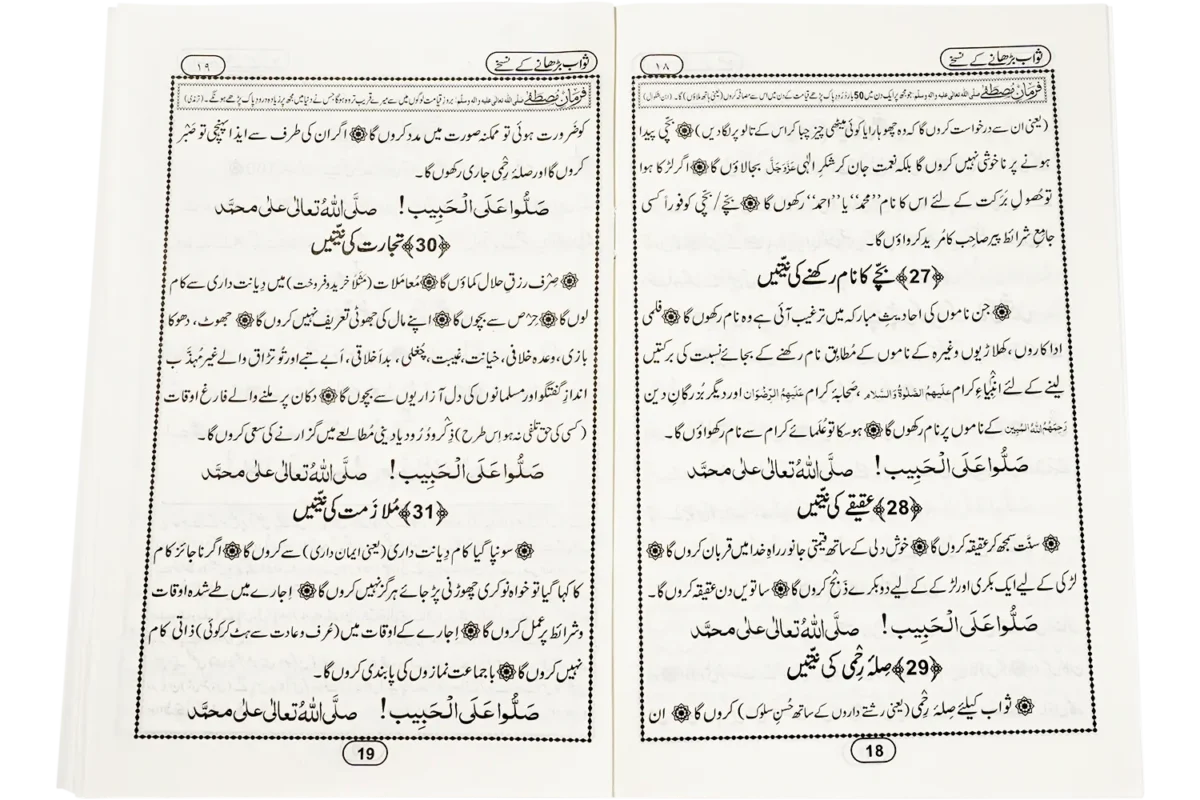 ثواب بڑھانے کے نسخے
١٨
فرمانِ مُصطَفٰے صلی اللہ تعالیٰ علیہ والہ وسلم: جو مجھ پر ایک دن میں 50 بار دُرُود پاک پڑھے قیامت کے دن میں اس سے مصافحہ کروں (یعنی ہاتھ ملاؤں) گا۔ (ابن بشکوال)
(یعنی ان سے درخواست کروں گا کہ وہ چھوہارا یا کوئی میٹھی چیز چبا کر اس کے تالو پر لگا دیں) ۞ بچّی پیدا
ہونے پر ناخوشی نہیں کروں گا بلکہ نعمت جان کر شکرِ الٰہی عَزَّوَجَلَّ بجالاؤں گا ۞ اگر لڑکا ہوا
تو حُصولِ بَرَکت کے لئے اس کا نام ’’محمد‘‘ یا ’’احمد‘‘ رکھوں گا ۞ بچّے/بچّی کو فوراً کسی
جامعِ شرائط پیر صاحِب کا مُرید کرواؤں گا۔
﴿27﴾ بچّے کا نام رکھنے کی نیّتیں
۞ جن ناموں کی احادیثِ مبارکہ میں ترغیب آئی ہے وہ نام رکھوں گا ۞ فلمی
اداکاروں، کھلاڑیوں وغیرہ کے ناموں کے مُطابِق نام رکھنے کے بجائے نسبت کی برکتیں
لینے کے لئے انبِیاءِ کرام عَلَیْہِمُ الصَّلٰوۃُ وَالسَّلَام، صَحابۂ کرام عَلَیْہِمُ الرِّضْوَان اور دیگر بُزُرگانِ دین
رَحِمَہُمُ اللہُ الْمُبِیْن کے ناموں پر نام رکھوں گا ۞ ہوسکا تو عُلَمائے کرام سے نام رکھواؤں گا۔
صَلُّوا عَلَی الْحَبِیب! صلَّی اللہُ تعالٰی علٰی محمَّد
﴿28﴾ عقیقے کی نیّتیں
۞ سنّت سمجھ کر عقیقہ کروں گا ۞ خوش دلی کے ساتھ قیمتی جانور راہِ خدا میں قربان کروں گا ۞
لڑکی کے لیے ایک بکری اور لڑکے کے لیے دو بکرے ذَبح کروں گا ۞ ساتویں دن عقیقہ کروں گا۔
صَلُّوا عَلَی الْحَبِیب! صلَّی اللہُ تعالٰی علٰی محمَّد
﴿29﴾ صِلۂ رِحمی کی نیّتیں
۞ ثواب کیلئے صِلۂ رِحمی (یعنی رشتے داروں کے ساتھ حُسنِ سلوک) کروں گا ۞ اِن
18
ثواب بڑھانے کے نسخے
١٩
فرمانِ مُصطَفٰے صلی اللہ تعالیٰ علیہ والہ وسلم: بروزِ قیامت لوگوں میں سے میرے قریب تر وہ ہوگا جس نے دنیا میں مجھ پر زیادہ درود پاک پڑھے ہونگے۔ (ترمذی)
کو ضَرورت ہوئی تو ممکنہ صورت میں مدد کروں گا ۞ اگر ان کی طرف سے ایذا پہنچی تو صَبْر
کروں گا اور صِلۂ رِحمی جاری رکھوں گا۔
صَلُّوا عَلَی الْحَبِیب! صلَّی اللہُ تعالٰی علٰی محمَّد
﴿30﴾ تجارت کی نیّتیں
۞ صِرف رزقِ حلال کماؤں گا ۞ مُعاملات (مَثَلاً خرید و فروخت) میں دِیانت داری سے کام
لوں گا ۞ حِرْص سے بچوں گا ۞ اپنے مال کی جھوٹی تعریف نہیں کروں گا ۞ جھوٹ، دھوکا
بازی، وعدہ خلافی، خیانت، غیبت، چُغلی، بداَخلاقی، اَبے تبے اور تُو تڑاق والے غیر مُہذَّب
اندازِ گفتگو اور مسلمانوں کی دل آزاریوں سے بچوں گا ۞ دکان پر ملنے والے فارغ اوقات
(کسی کی حق تلفی نہ ہو اِس طرح) ذِکر و دُرُود یا دینی مُطالعے میں گزارنے کی سعی کروں گا۔
صَلُّوا عَلَی الْحَبِیب! صلَّی اللہُ تعالٰی علٰی محمَّد
﴿31﴾ مُلازَمت کی نیّتیں
۞ سونپا گیا کام دِیانت داری (یعنی ایمان داری) سے کروں گا ۞ اگر ناجائز کام
کا کہا گیا تو خواہ نوکری چھوڑنی پڑ جائے ہرگز نہیں کروں گا ۞ اِجارے میں طے شدہ اَوقات
و شرائط پر عمل کروں گا ۞ اِجارے کے اوقات میں (عُرف و عادت سے ہٹ کر کوئی) ذاتی کام
نہیں کروں گا ۞ باجماعت نمازوں کی پابندی کروں گا۔
صَلُّوا عَلَی الْحَبِیب! صلَّی اللہُ تعالٰی علٰی محمَّد
19